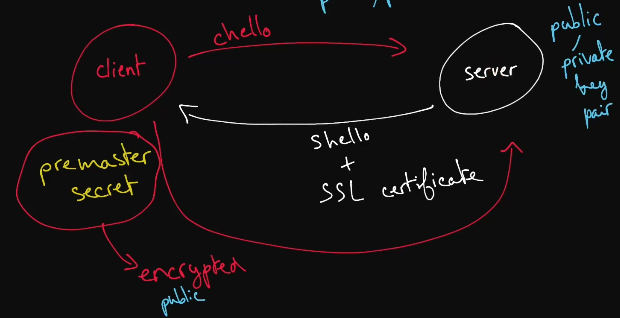 chello
client
server
public
/
private
key
pair
shello
+
SSL certificate
premaster
secret
encrypted
public